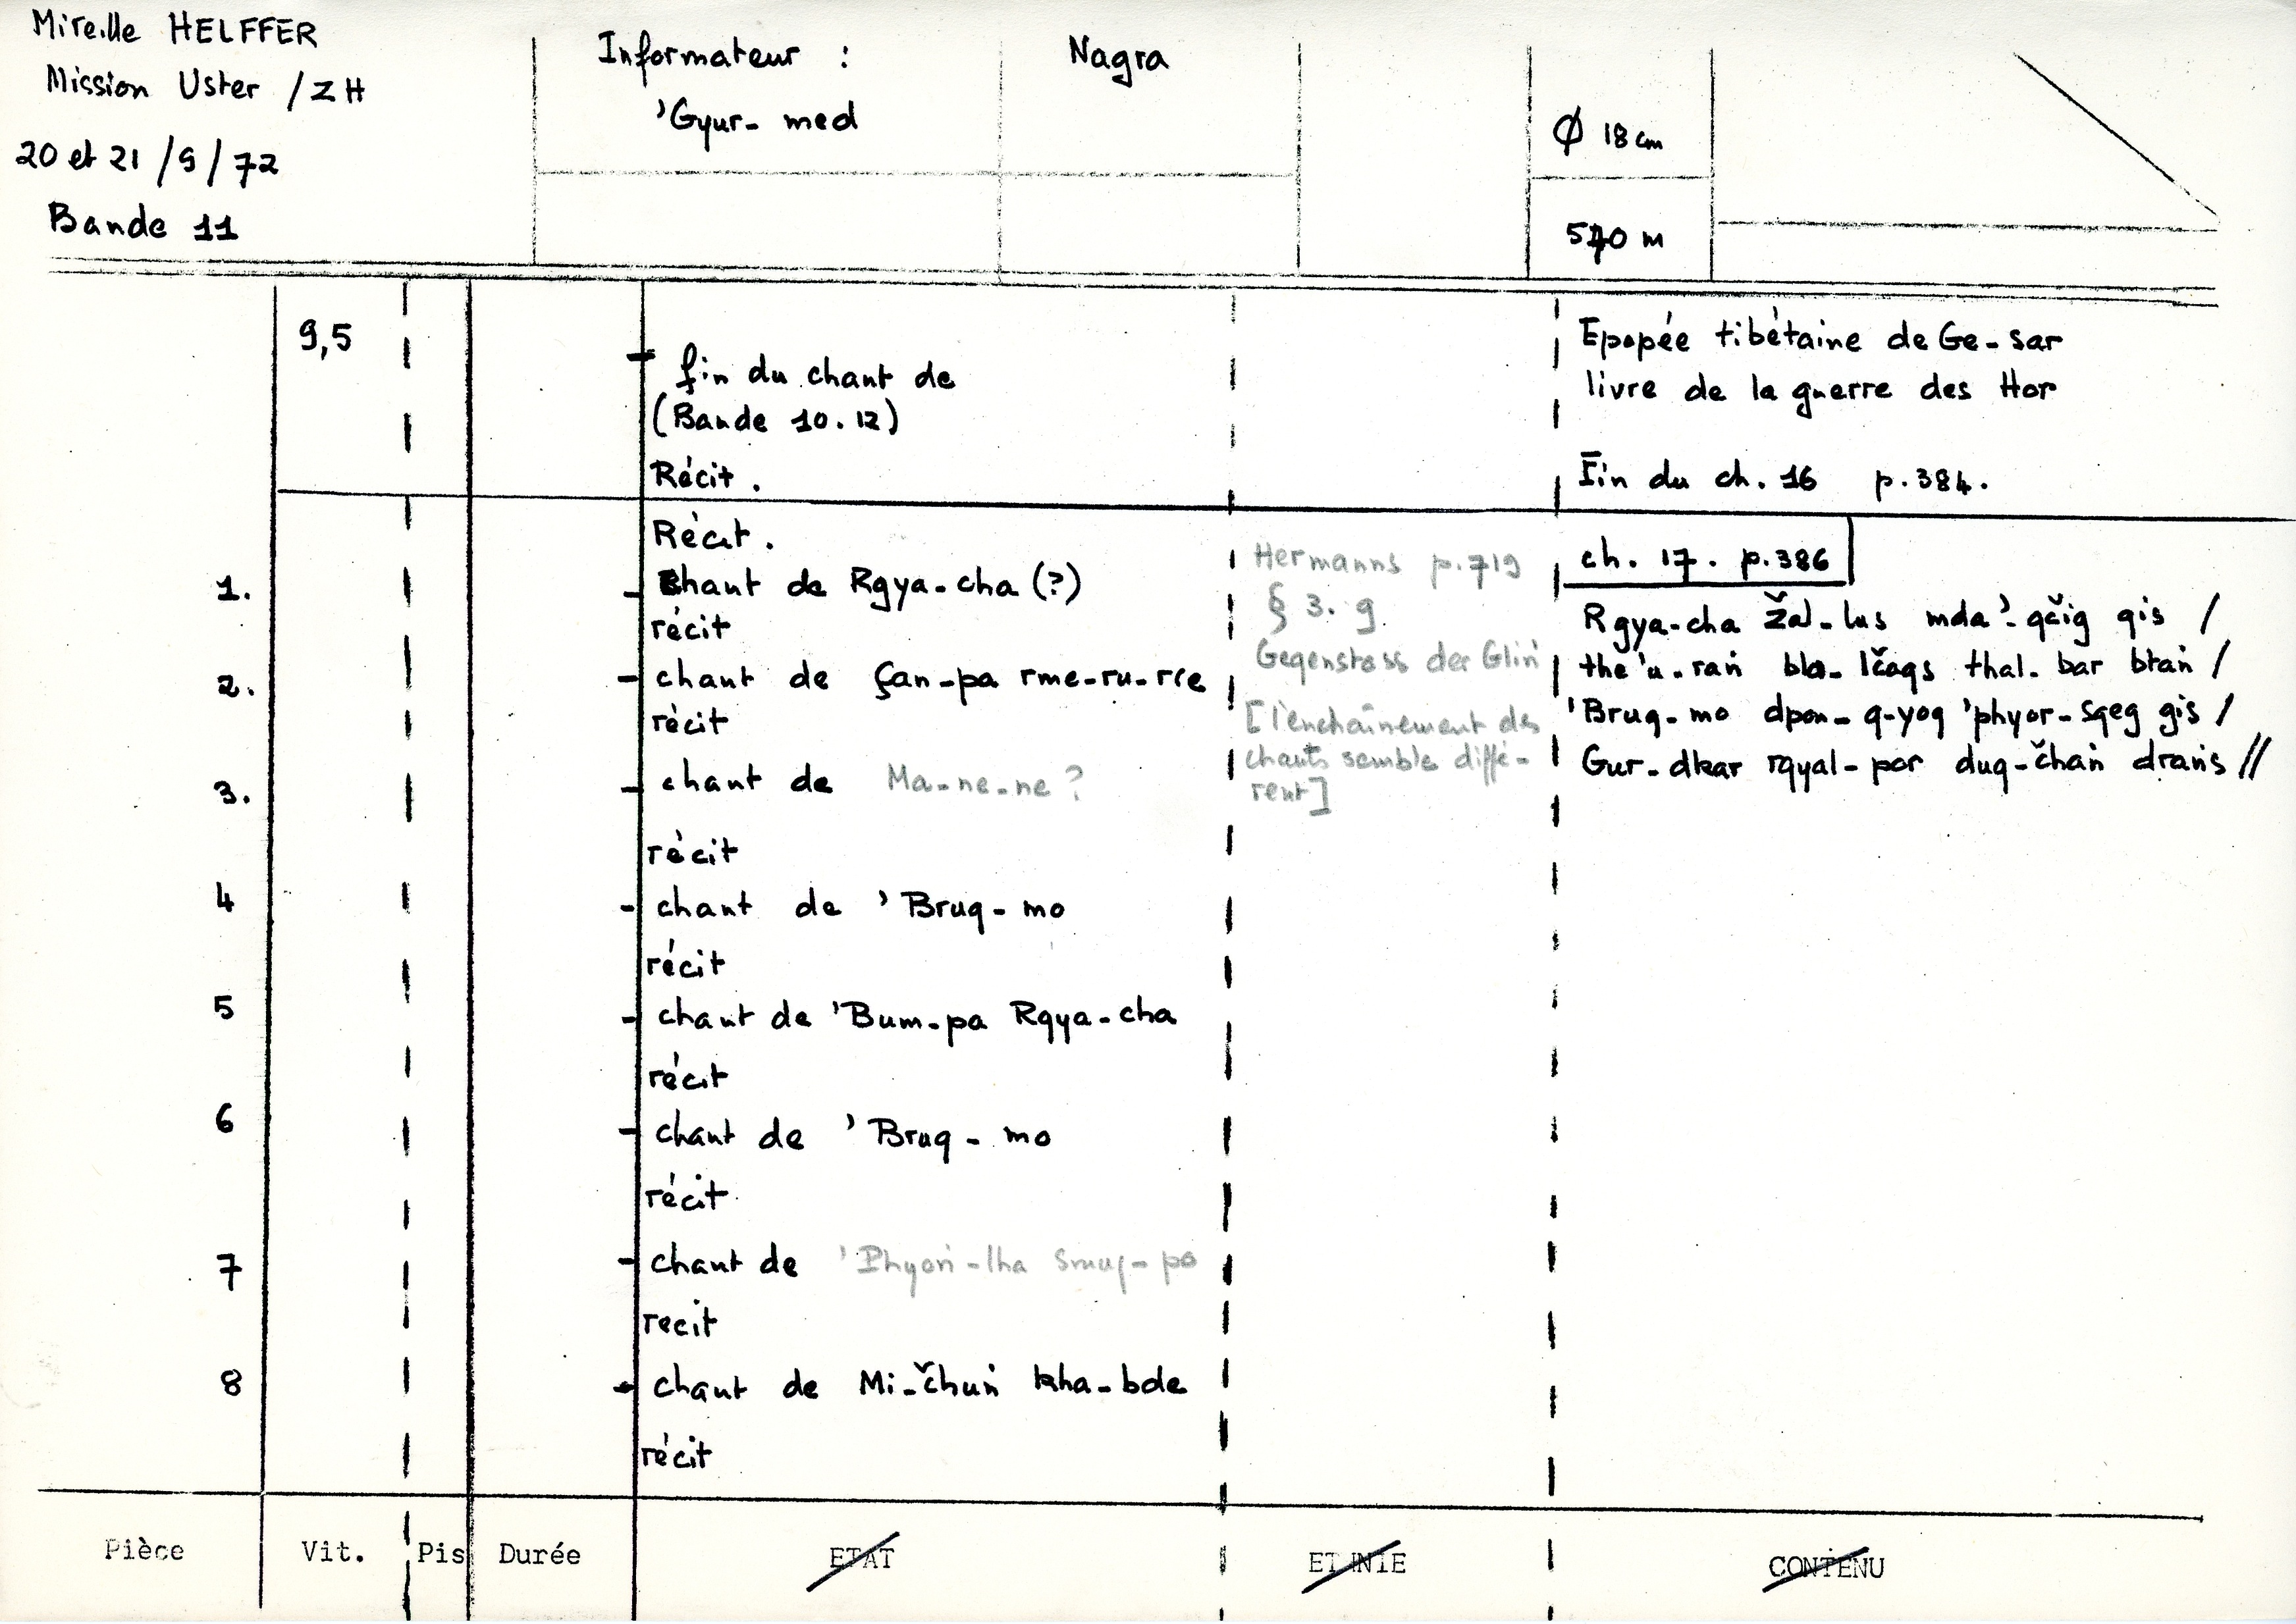 Mireille HELFFER
Mission Uster /ZH
20 et 21 /9/72
Bande 11
Informateur :
'Gyur-med
Nagra
Ø 18 cm
570 m
9,5
fin du chant de
(Bande 10.12)
Récit.
Epopée tibétaine de Ge-sar
livre de la guerre des Hor
Fin du ch. 16 p.384.
Récit.
1. chant de Rgya-cha (?)
récit
2. chant de Çan-pa rme-ru-rce
récit
3. chant de Ma-ne-ne ?
récit
4 chant de 'Brug-mo
récit
5 chant de 'Bum-pa Rgya-cha
récit
6 chant de 'Brug-mo
récit
7 chant de 'Phyoṅ-lha Smug-po
recit
8 chant de Mi-čhuṅ kha-bde
récit
Hermanns p.719
§ 3. g.
Gegenstoss der Gliṅ
[l'enchaînement des
chants semble diffé-
rent]
ch. 17. p.386
Rgya-cha žal-lus mda'-gčig gis /
the'u-raṅ bla-lčags thal-bar btaṅ /
'Brug-mo dpon-g-yog 'phyor-sgeg gis /
Gur-dkar rgyal-por dug-čhaṅ draṅs //
Pièce Vit. Pis Durée ETAT ETHNIE CONTENU